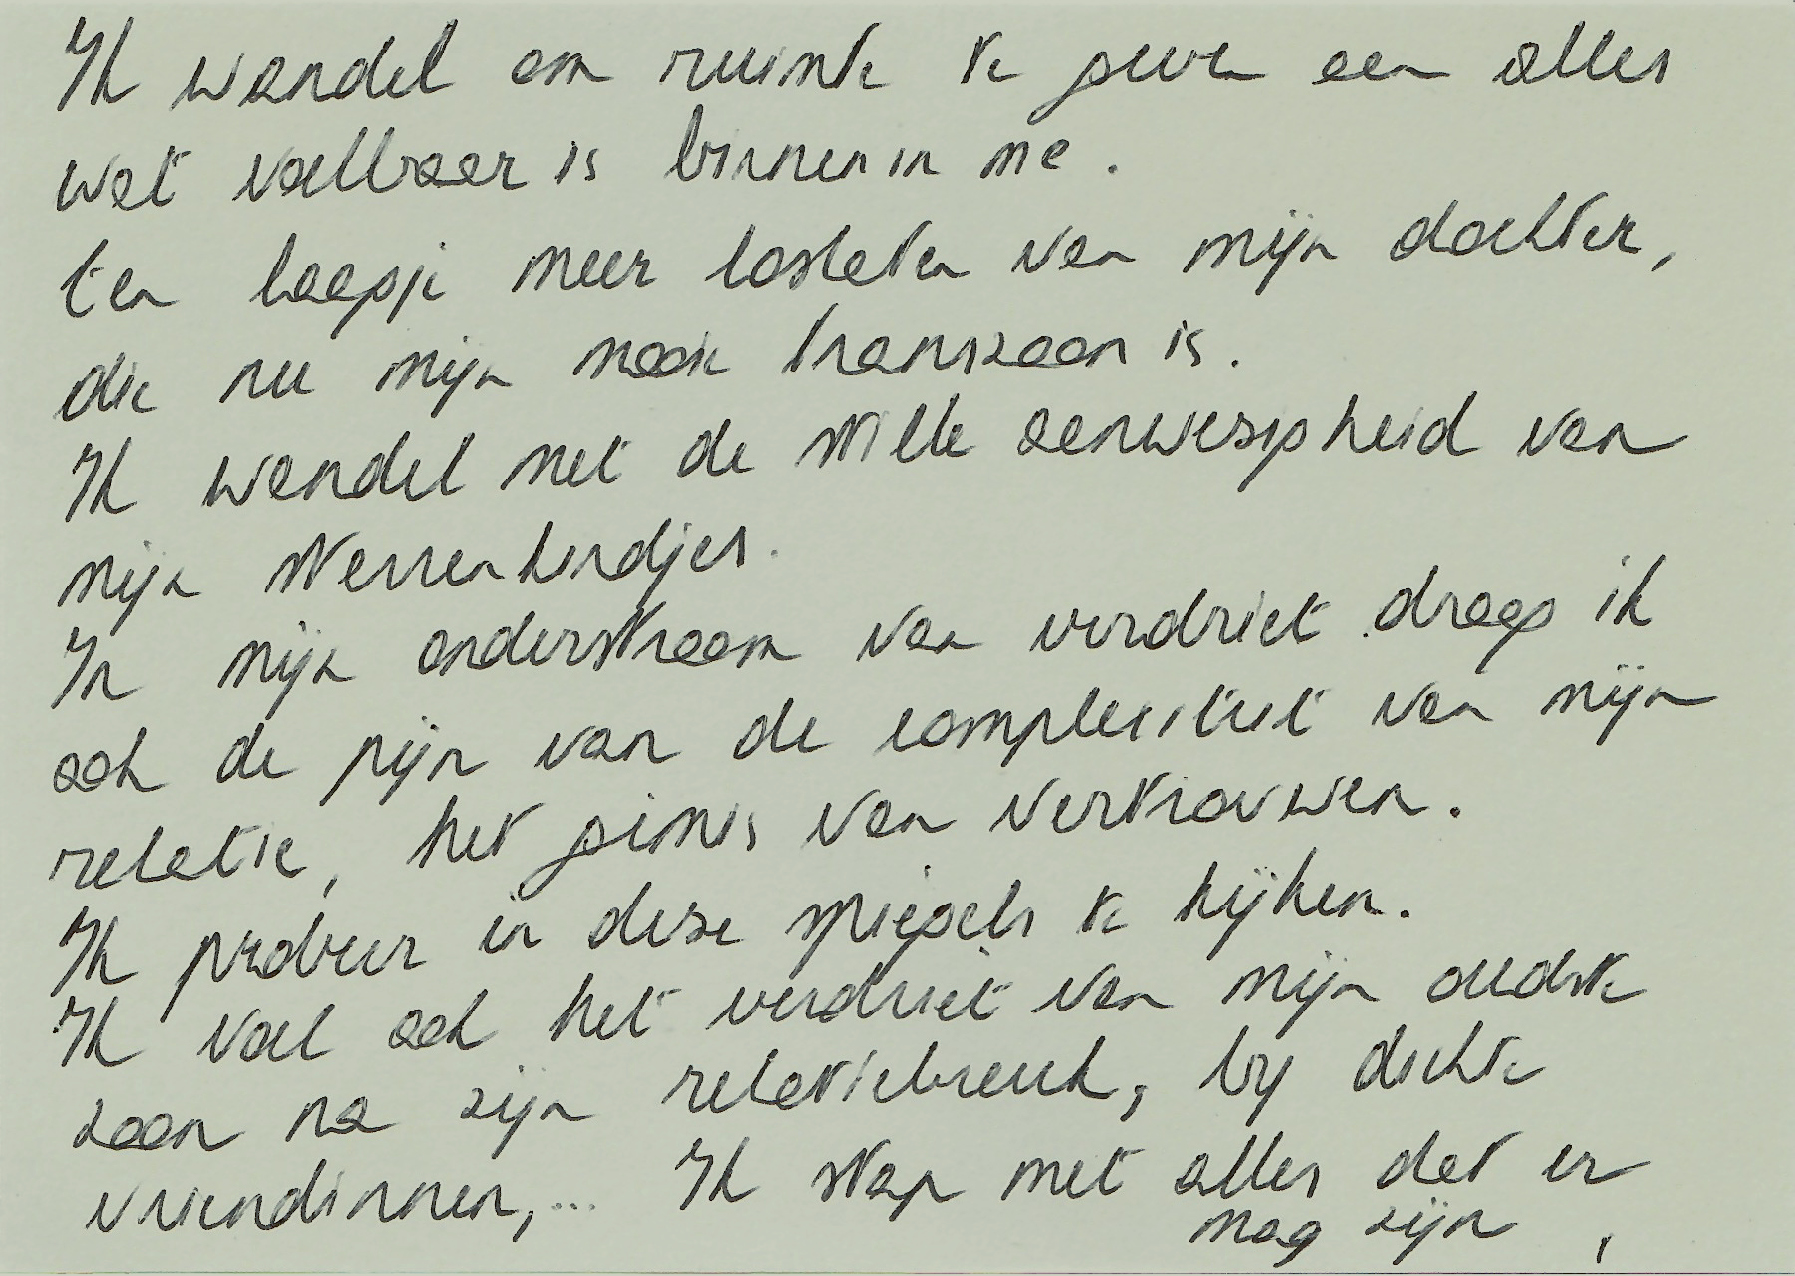 Ik wandel om ruimte te geven aan alles
wat voelbaar is binnen in me.
Een laagje meer loslaten van mijn dochter,
die nu mijn mooie transzoon is.
Ik wandel met de stille aanwezigheid van
mijn sterrenkindjes.
In mijn onderstroom van verdriet draag ik
ook de pijn van de complexiteit van mijn
relatie, het gemis van vertrouwen.
Ik probeer in deze spiegels te kijken.
Ik voel ook het verdriet van mijn oudste
zoon na zijn relatiebreuk, bij dichte
vriendinnen,... Ik stap met alles dat er
mag zijn.